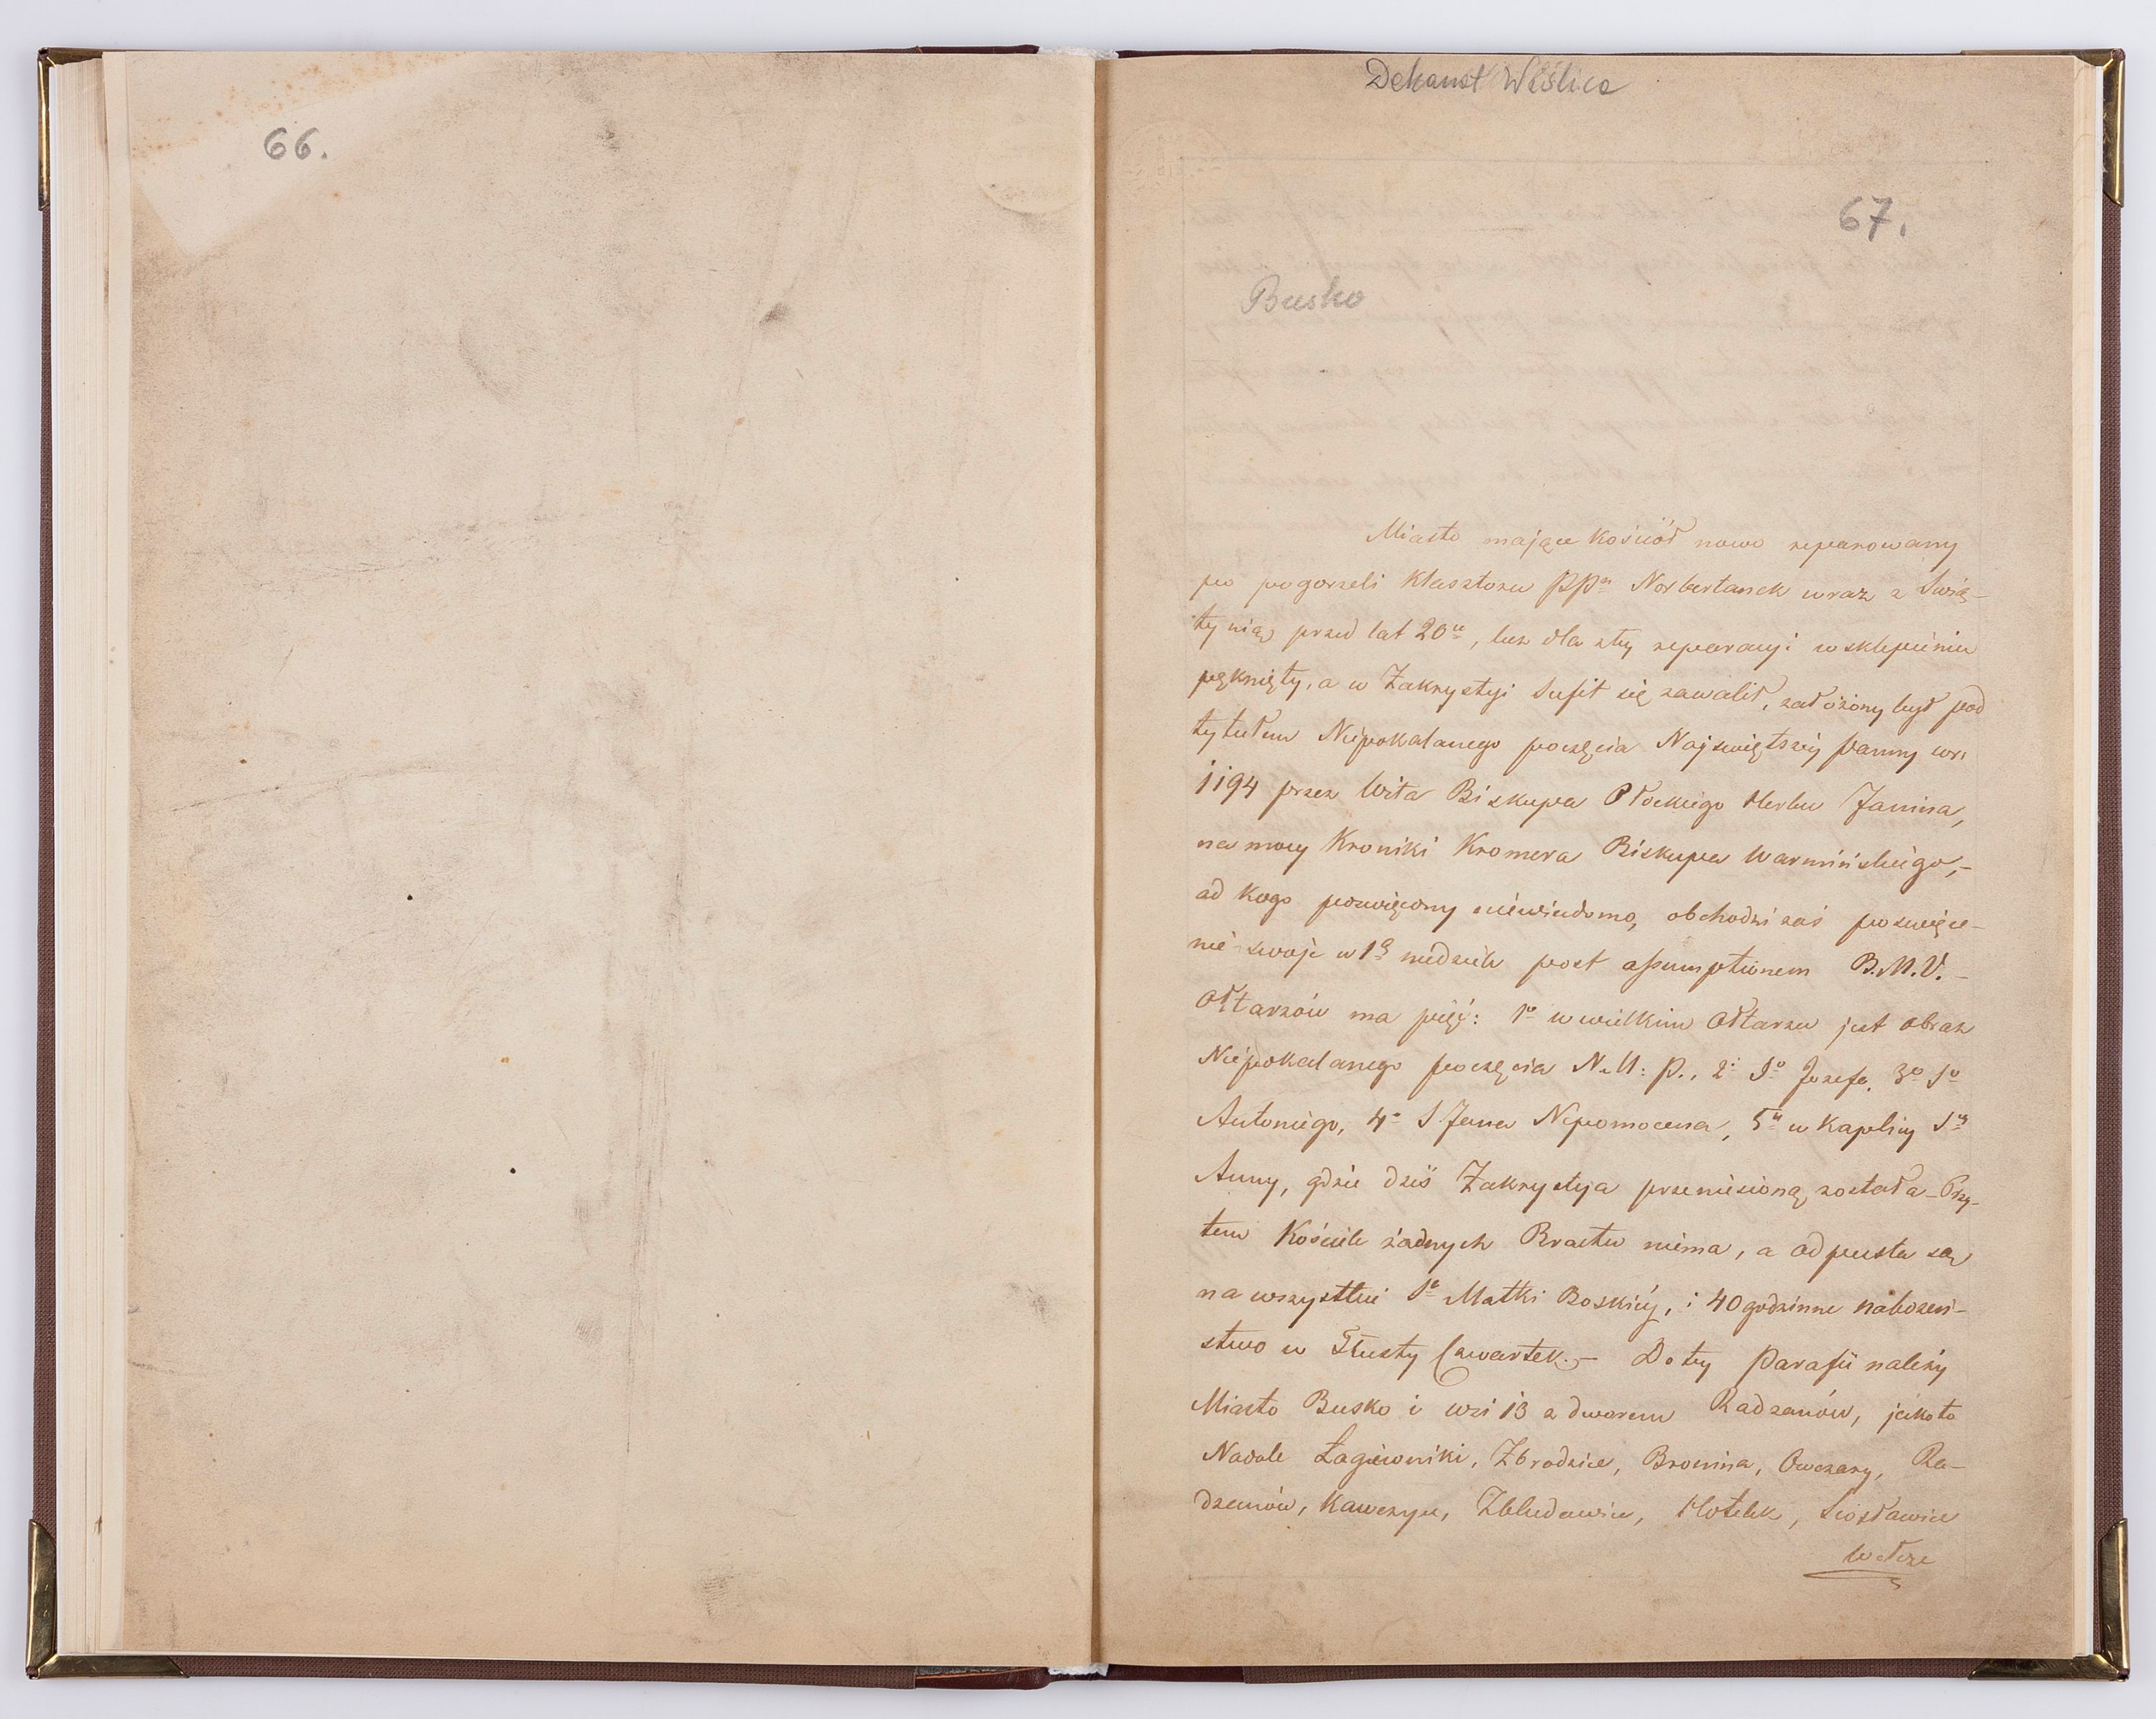 66.
Dekanat Wiślica
67.
Busko
Miasto mające Kościół nowo reparowany
po pogorzeli Klasztoru PPn Norbertanek wraz z Swią-
tynią przed lat 20u, lecz dla złej reparacyi w sklepieniu
pęknięty, a w Zakrystyi Sufit się zawalił, założony był pod
tytułem Niepokalanego poczęcia Najświętszej Panny wr.
1194 przez Wita Biskupa Płockiego Herbu Janina,
na mocy Kroniki Kromera Biskupa Warmińskiego,-
od kogo poswięcony niewiadomo, obchodzi zaś poswięce-
nie swoje w 1ą niedzielę post assumptionem B.M.V.-
Ołtarzów ma pięć: 1o w wielkim Ołtarzu jest obraz
Niepokalanego poczęcia N.M:P., 2: So Jozefa, 3o So
Antoniego, 4o S. Jana Nepomocena, 5u w Kaplicy Sej
Anny, gdzie dziś Zakrystya przeniesioną została - Przy-
tem Kościele żadnych Bractw niema, a odpusta są
na wszystkie Sa Matki Boskiej, i 40 godzinne nabożeń-
stwo w Tłusty Czwartek.- Do tej Parafii należy
Miasto Busko i wsi 13 z dworem Radzanów, jakoto
Nadole Łagiewniki, Zbrodzice, Bronina, Owczary, Ra-
dzanów, Kawczyce, Zbludowice, Hotelek, Siosławice
Wełcze